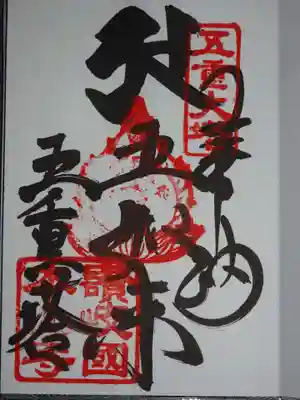 五重大塔
奉納
五如来
五重大塔
讃岐國